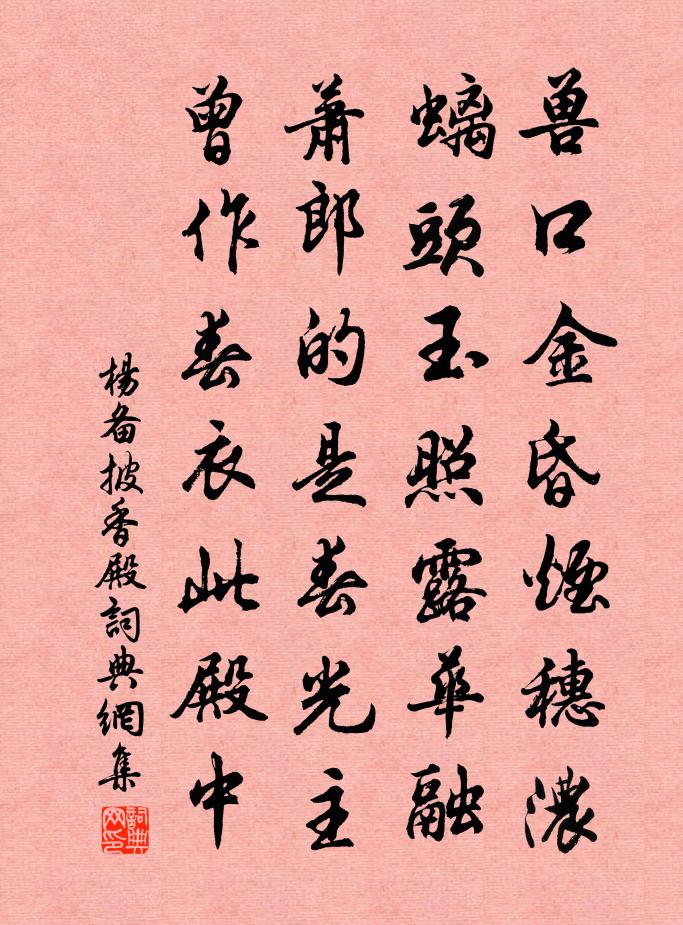 兽口金昏煙穗濃
螭頭玉照露華融
蕭郎的是春光主
曾作春衣此殿中
楊备披香殿詞典網集
詞典网印